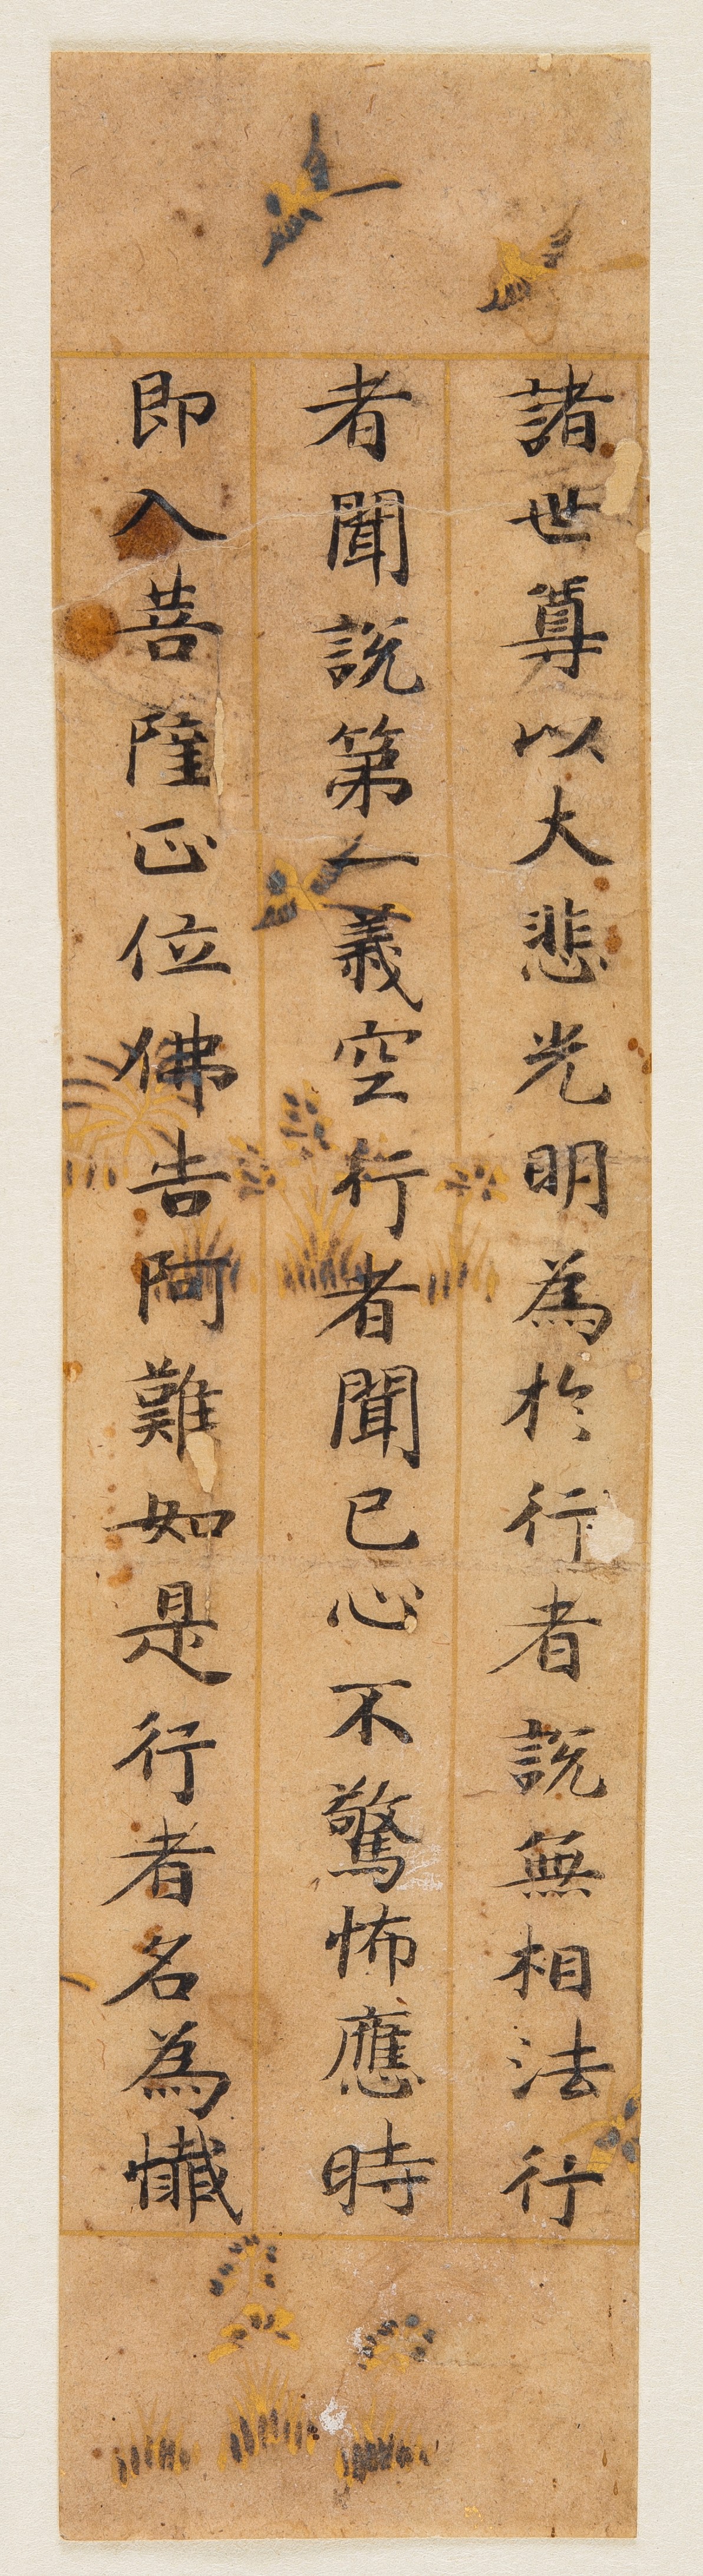 諸世尊以大悲光明為於行者說無相法行
者聞說第一義空行者聞已心不驚怖應時
即入菩薩正位佛告阿難如是行者名為懺